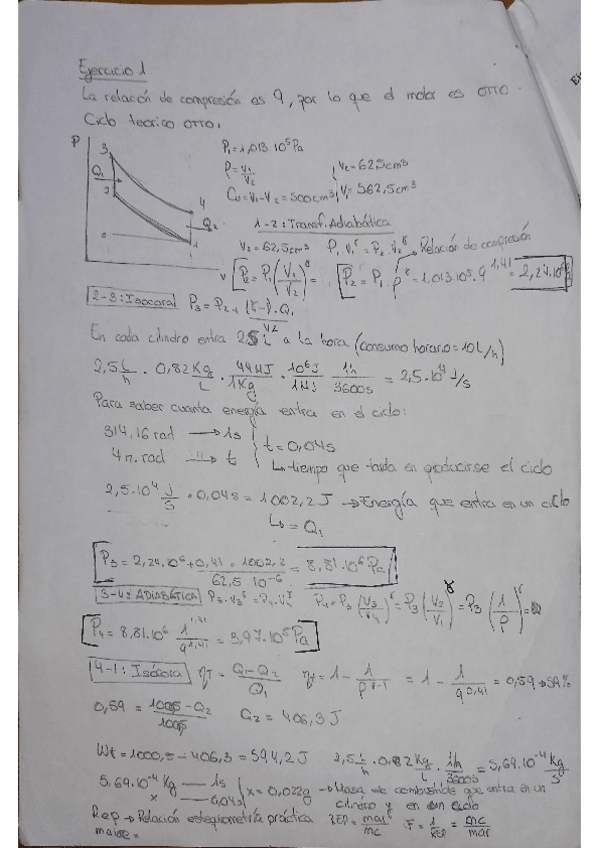 Ejercicio 1
La relación de compresión es 9, por lo que el motor es OTTO.
Ciclo teorico OTTO.
P
3
Q1
2
4
Q2
1
V
P1=1,013·10⁵Pa
ρ=V1/V2
V2=62,5cm³
Cu=V1-V2=500cm³
V1=562,5cm³
1-2: Transf. Adiabática
V2=62,5cm³ P1·V1^γ=P2·V2^γ
Relación de compresión
P2=P1(V1/V2)^γ= P2=P1·ρ^γ=1.013·10⁵·9^1,41=2,24·10⁶
2-3: Isocora P3=P2+(γ-1)·Q1/V2
En cada cilindro entra 2,5L a la hora (consumo horario=10L/h)
2,5 L/h · 0,82 Kg/L · 44MJ/1Kg · 10⁶J/1MJ · 1h/3600s = 2,5·10⁴ J/s
Para saber cuanta energía entra en el ciclo:
314,16 rad → 1s
4π rad → t
t=0,04s
↳ tiempo que tarda en producirse el ciclo
2,5·10⁴ J/s · 0,04s = 1002,2 J → Energía que entra en un ciclo
↳ = Q1
P3=2,24·10⁶+0,41·1002,2/62,5·10⁻⁶=8,81·10⁶Pa
3-4: ADIABÁTICA P3·V3^γ=P4·V4^γ P4=P3(V3/V4)^γ=P3(V2/V1)^γ=P3(1/ρ)^γ=
P4=8,81·10⁶ 1^1,41/9^1,41=3,97·10⁵Pa
4-1: Isócora ηT=Q1-Q2/Q1 ηt=1-1/ρ^γ-1=1-1/9^0,41=0,59→59%
0,59=1005-Q2/1005 Q2=406,3J
Wt=1000,5-406,3=594,2J 2,5 L/h · 0.82 Kg/L · 1h/3600s=5,69·10⁻⁴ Kg/s
5,69·10⁻⁴Kg — 1s
x — 0,04s
x=0,022g → Masa de combustible que entra en un
cilindro y en un ciclo
Rep → Relación estequiometría práctica REP=mar/mc F=1/REP=mc/mar